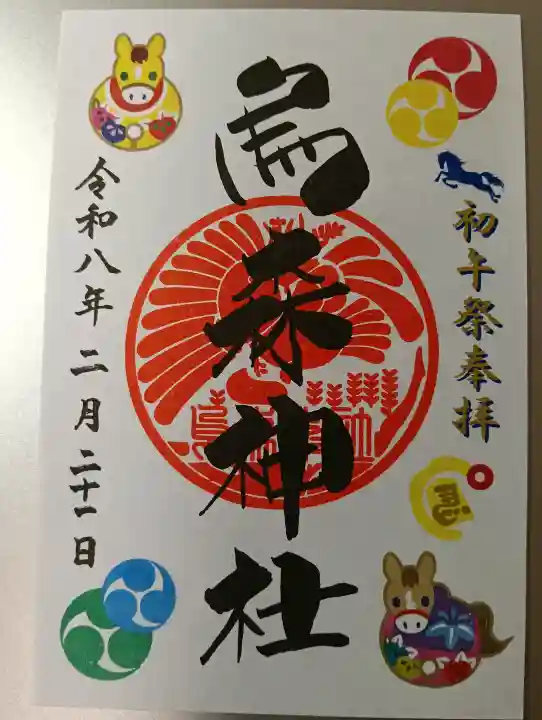 初午祭奉拝
烏森神社
令和八年二月二十一日